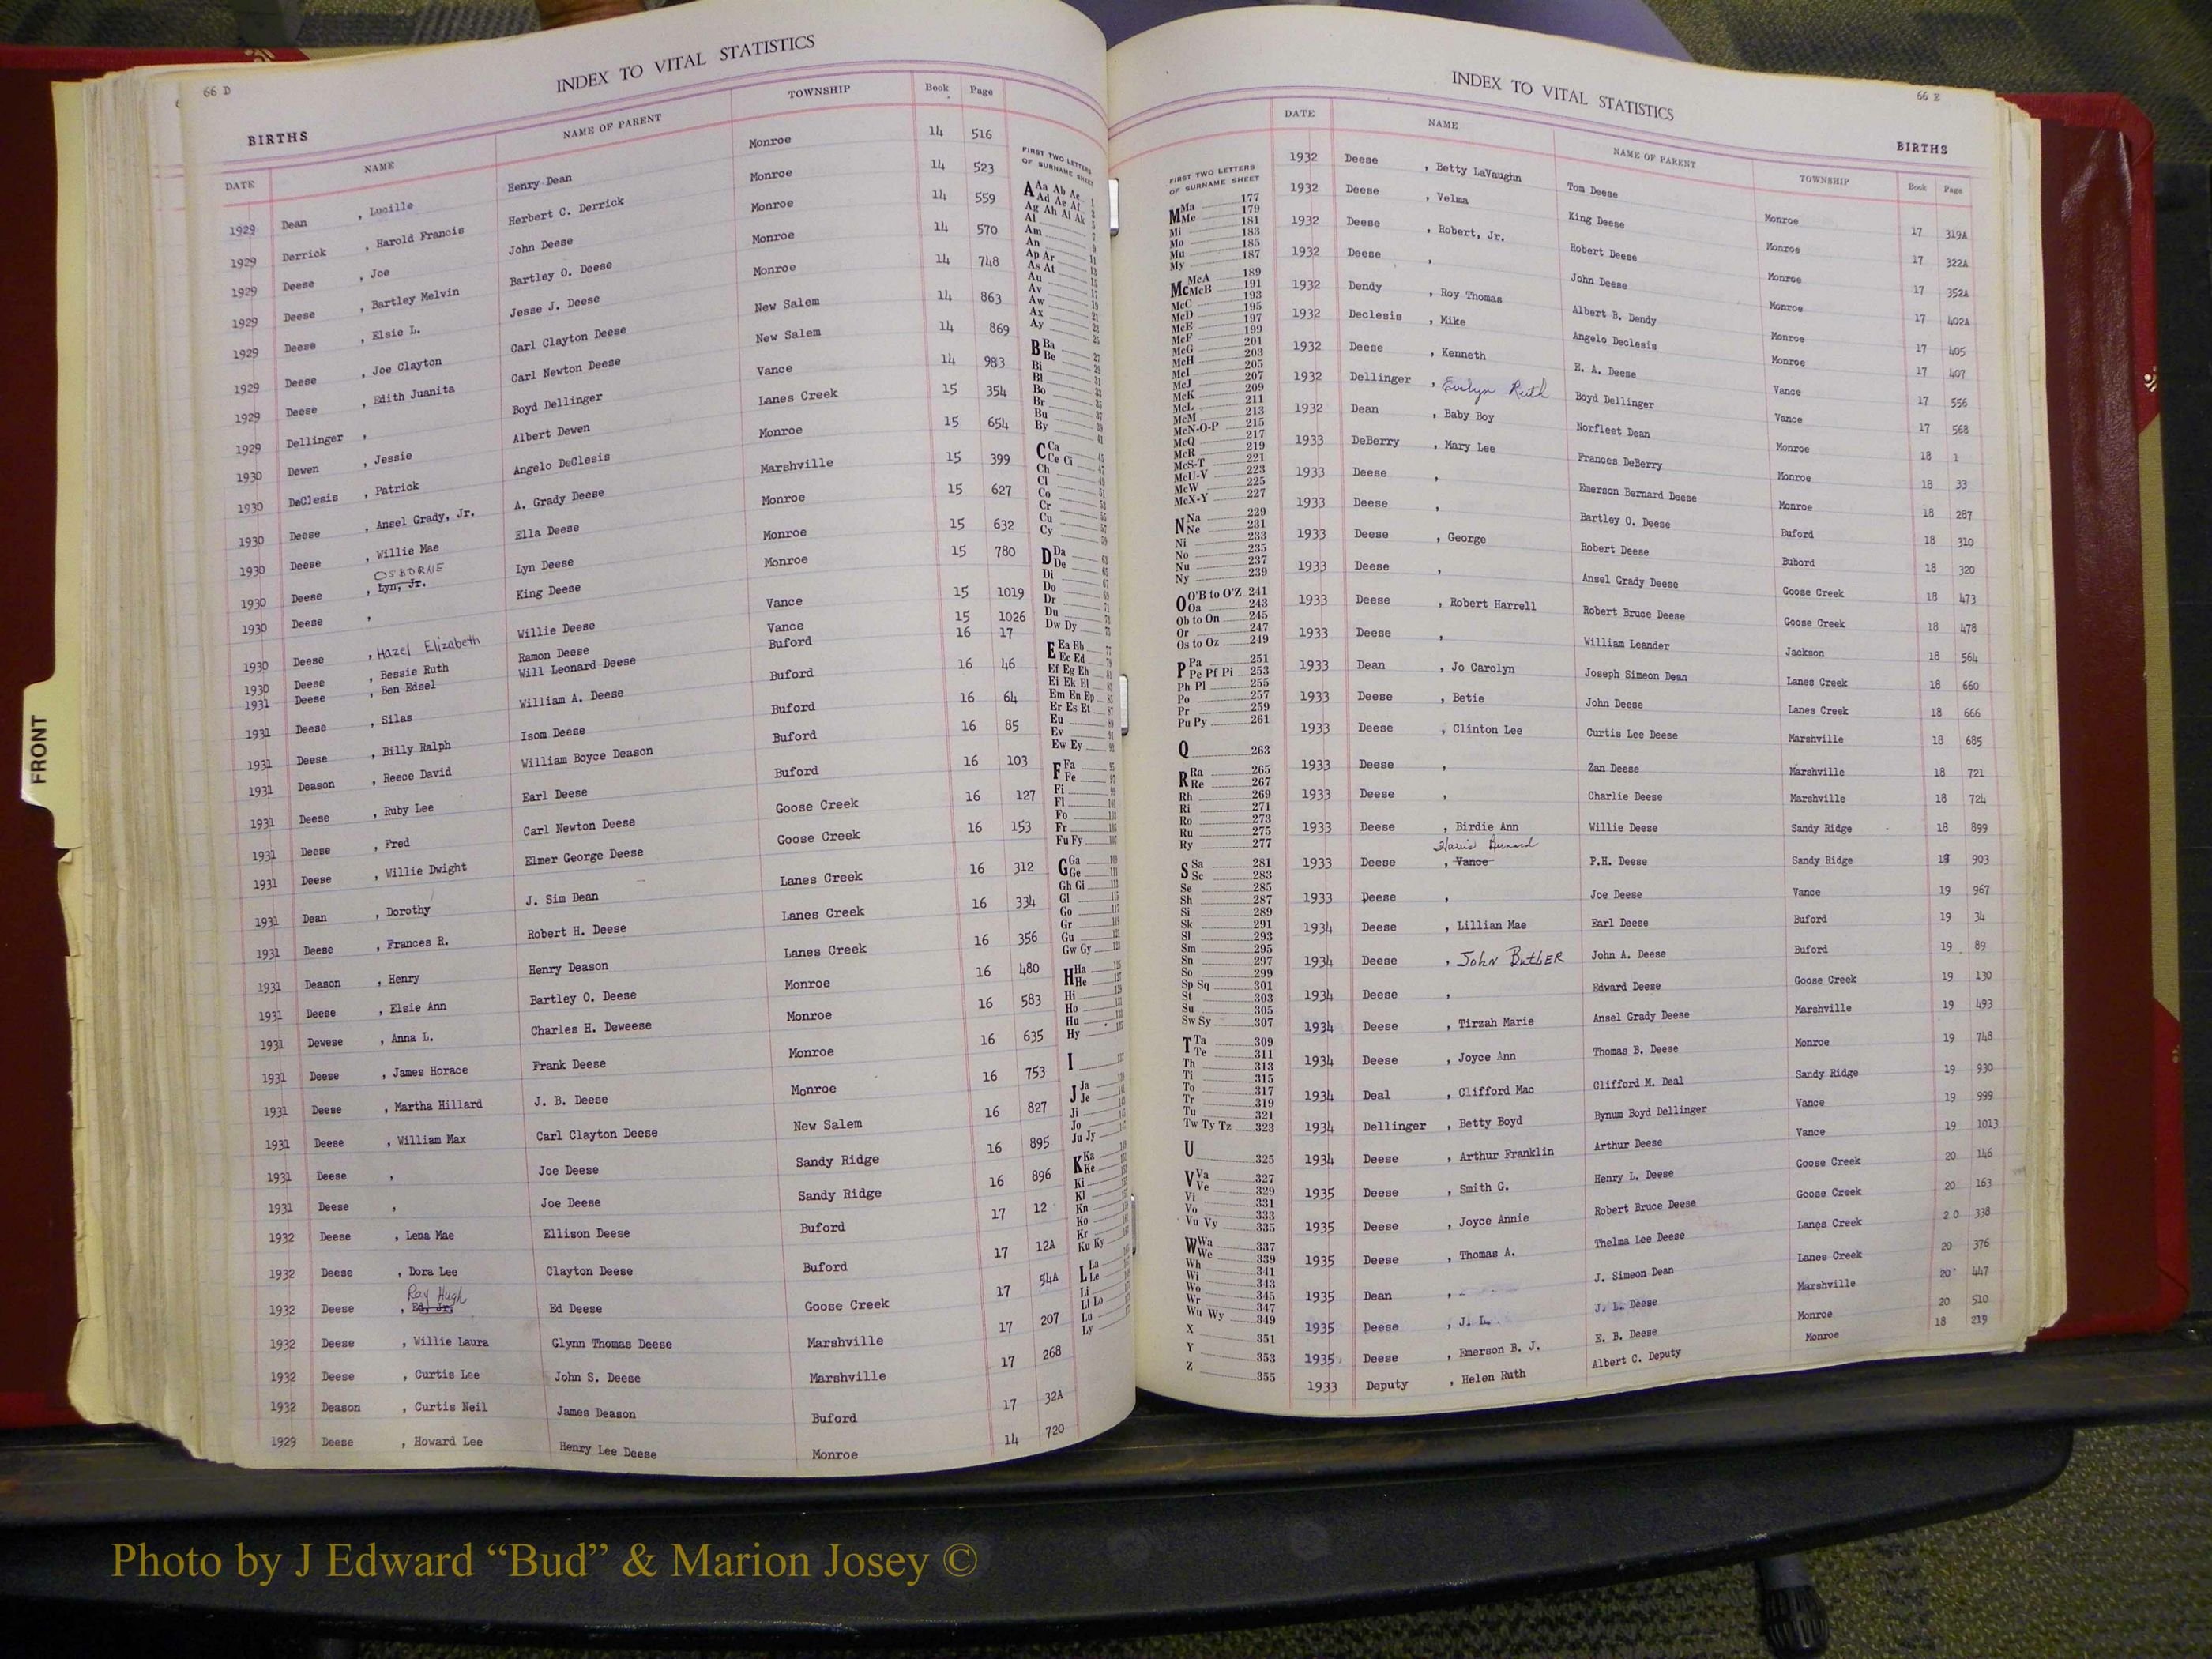 66 D
INDEX TO VITAL STATISTICS
BIRTHS
DATE NAME NAME OF PARENT TOWNSHIP Book Page
1929 Dean , Lucille Henry Dean Monroe 14 516
1929 Derrick , Harold Francis Herbert C. Derrick Monroe 14 523
1929 Deese , Joe John Deese Monroe 14 559
1929 Deese , Bartley Melvin Bartley O. Deese Monroe 14 570
1929 Deese , Elsie L. Jesse J. Deese Monroe 14 748
1929 Deese , Joe Clayton Carl Clayton Deese New Salem 14 863
1929 Deese , Edith Juanita Carl Newton Deese New Salem 14 869
1929 Dellinger , Boyd Dellinger Vance 14 983
1930 Dewen , Jessie Albert Dewen Lanes Creek 15 354
1930 DeClesis , Patrick Angelo DeClesis Monroe 15 654
1930 Deese , Ansel Grady, Jr. A. Grady Deese Marshville 15 399
1930 Deese , Willie Mae Ella Deese Monroe 15 627
OSBORNE
1930 Deese , Lyn, Jr. Lyn Deese Monroe 15 632
1930 Deese , King Deese Monroe 15 780
1930 Deese , Hazel Elizabeth Willie Deese Vance 15 1019
1930 Deese , Bessie Ruth Ramon Deese Vance 15 1026
1931 Deese , Ben Edsel Will Leonard Deese Buford 16 17
1931 Deese , Silas William A. Deese Buford 16 46
1931 Deese , Billy Ralph Isom Deese Buford 16 64
1931 Deason , Reece David William Boyce Deason Buford 16 85
1931 Deese , Ruby Lee Earl Deese Buford 16 103
1931 Deese , Fred Carl Newton Deese Goose Creek 16 127
1931 Deese , Willie Dwight Elmer George Deese Goose Creek 16 153
1931 Dean , Dorothy J. Sim Dean Lanes Creek 16 312
1931 Deese , Frances R. Robert H. Deese Lanes Creek 16 334
1931 Deason , Henry Henry Deason Lanes Creek 16 356
1931 Deese , Elsie Ann Bartley O. Deese Monroe 16 480
1931 Dewese , Anna L. Charles H. Deweese Monroe 16 583
1931 Deese , James Horace Frank Deese Monroe 16 635
1931 Deese , Martha Hillard J. B. Deese Monroe 16 753
1931 Deese , William Max Carl Clayton Deese New Salem 16 827
1931 Deese , Joe Deese Sandy Ridge 16 895
1931 Deese , Joe Deese Sandy Ridge 16 896
1932 Deese , Lena Mae Ellison Deese Buford 17 12
1932 Deese , Dora Lee Clayton Deese Buford 17 12A
Ray Hugh
1932 Deese , Ed, Jr. Ed Deese Goose Creek 17 54A
1932 Deese , Willie Laura Glynn Thomas Deese Marshville 17 207
1932 Deese , Curtis Lee John S. Deese Marshville 17 268
1932 Deason , Curtis Neil James Deason Buford 17 32A
1929 Deese , Howard Lee Henry Lee Deese Monroe 14 720
FIRST TWO LETTERS
OF SURNAME SHEET
A Aa Ab Ac
Ad Ae Af
Ag Ah Ai Ak
Al
Am
An
Ap Ar
As At
Au
Av
Aw
Ax
Ay
B Ba
Be
Bi
Bl
Bo
Br
Bu
By
C Ca
Ce Ci
Ch
Cl
Co
Cr
Cu
Cy
D Da
De
Di
Do
Dr
Du
Dw Dy
E Ea Eb
Ec Ed
Ef Eg Eh
Ei Ek El
Em En Ep
Er Es Et
Eu
Ev
Ew Ey
F Fa
Fe
Fi
Fl
Fo
Fr
Fu Fy
G Ga
Ge
Gh Gi
Gl
Go
Gr
Gu
Gw Gy
H Ha
He
Hi
Ho
Hu
Hy
I
J Ja
Je
Ji
Jo
Ju Jy
K Ka
Ke
Ki
Kl
Kn
Ko
Kr
Ku Ky
L La
Le
Li
Ll Lo
Lu
Ly
FRONT
INDEX TO VITAL STATISTICS
66 E
BIRTHS
FIRST TWO LETTERS
OF SURNAME SHEET
M Ma 177
Me 179
Mi 181
Mo 183
Mu 185
My 187
Mc McA 189
McB 191
McC 193
McD 195
McE 197
McF 199
McG 201
McH 203
McI 205
McJ 207
McK 209
McL 211
McM 213
McN-O-P 215
McQ 217
McR 219
McS-T 221
McU-V 223
McW 225
McX-Y 227
N Na 229
Ne 231
Ni 233
No 235
Nu 237
Ny 239
O O'B to O'Z 241
Oa 243
Ob to On 245
Or 247
Os to Oz 249
P Pa 251
Pe Pf Pi 253
Ph Pl 255
Po 257
Pr 259
Pu Py 261
Q 263
R Ra 265
Re 267
Rh 269
Ri 271
Ro 273
Ru 275
Ry 277
S Sa 281
Sc 283
Se 285
Sh 287
Si 289
Sk 291
Sl 293
Sm 295
Sn 297
So 299
Sp Sq 301
St 303
Su 305
Sw Sy 307
T Ta 309
Te 311
Th 313
Ti 315
To 317
Tr 319
Tu 321
Tw Ty Tz 323
U 325
V Va 327
Ve 329
Vi 331
Vo 333
Vu Vy 335
W Wa 337
We 339
Wh 341
Wi 343
Wo 345
Wr 347
Wu Wy 349
X 351
Y 353
Z 355
DATE NAME NAME OF PARENT TOWNSHIP Book Page
1932 Deese , Betty LaVaughn Tom Deese Monroe 17 319A
1932 Deese , Velma King Deese Monroe 17 322A
1932 Deese , Robert, Jr. Robert Deese Monroe 17 352A
1932 Deese , John Deese Monroe 17 402A
1932 Dendy , Roy Thomas Albert B. Dendy Monroe 17 405
1932 Declesis , Mike Angelo Declesis Monroe 17 407
1932 Deese , Kenneth E. A. Deese Vance 17 556
1932 Dellinger , Evelyn Ruth Boyd Dellinger Vance 17 568
1932 Dean , Baby Boy Norfleet Dean Monroe 18 1
1933 DeBerry , Mary Lee Frances DeBerry Monroe 18 33
1933 Deese , Emerson Bernard Deese Monroe 18 287
1933 Deese , Bartley O. Deese Buford 18 310
1933 Deese , George Robert Deese Bubord 18 320
1933 Deese , Ansel Grady Deese Goose Creek 18 473
1933 Deese , Robert Harrell Robert Bruce Deese Goose Creek 18 478
1933 Deese , William Leander Jackson 18 564
1933 Dean , Jo Carolyn Joseph Simeon Dean Lanes Creek 18 660
1933 Deese , Betie John Deese Lanes Creek 18 666
1933 Deese , Clinton Lee Curtis Lee Deese Marshville 18 685
1933 Deese , Zan Deese Marshville 18 721
1933 Deese , Charlie Deese Marshville 18 724
1933 Deese , Birdie Ann Willie Deese Sandy Ridge 18 899
Bernard
1933 Deese , Vance P.H. Deese Sandy Ridge 18 903
1933 Deese , Joe Deese Vance 19 967
1934 Deese , Lillian Mae Earl Deese Buford 19 34
1934 Deese , John Butler John A. Deese Buford 19 89
1934 Deese , Edward Deese Goose Creek 19 130
1934 Deese , Tirzah Marie Ansel Grady Deese Marshville 19 493
1934 Deese , Joyce Ann Thomas B. Deese Monroe 19 748
1934 Deal , Clifford Mac Clifford M. Deal Sandy Ridge 19 930
1934 Dellinger , Betty Boyd Bynum Boyd Dellinger Vance 19 999
1934 Deese , Arthur Franklin Arthur Deese Vance 19 1013
1935 Deese , Smith G. Henry L. Deese Goose Creek 20 146
1935 Deese , Joyce Annie Robert Bruce Deese Goose Creek 20 163
1935 Deese , Thomas A. Thelma Lee Deese Lanes Creek 20 338
1935 Dean , J. Simeon Dean Lanes Creek 20 376
1935 Deese , J. L. J. L. Deese Marshville 20 447
1935 Deese , Emerson B. J. E. B. Deese Monroe 20 510
1933 Deputy , Helen Ruth Albert C. Deputy Monroe 18 219
Photo by J Edward “Bud” & Marion Josey ©